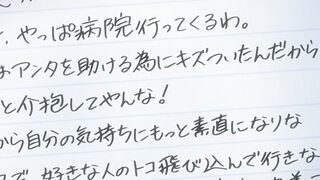 、やっぱ病院行ってくるわ。
アンタを助ける為にキズついたんだから
と介抱してやんな！
から自分の気持ちにもっと素直になりな
で、好きな人のトコ飛び込んで行きな